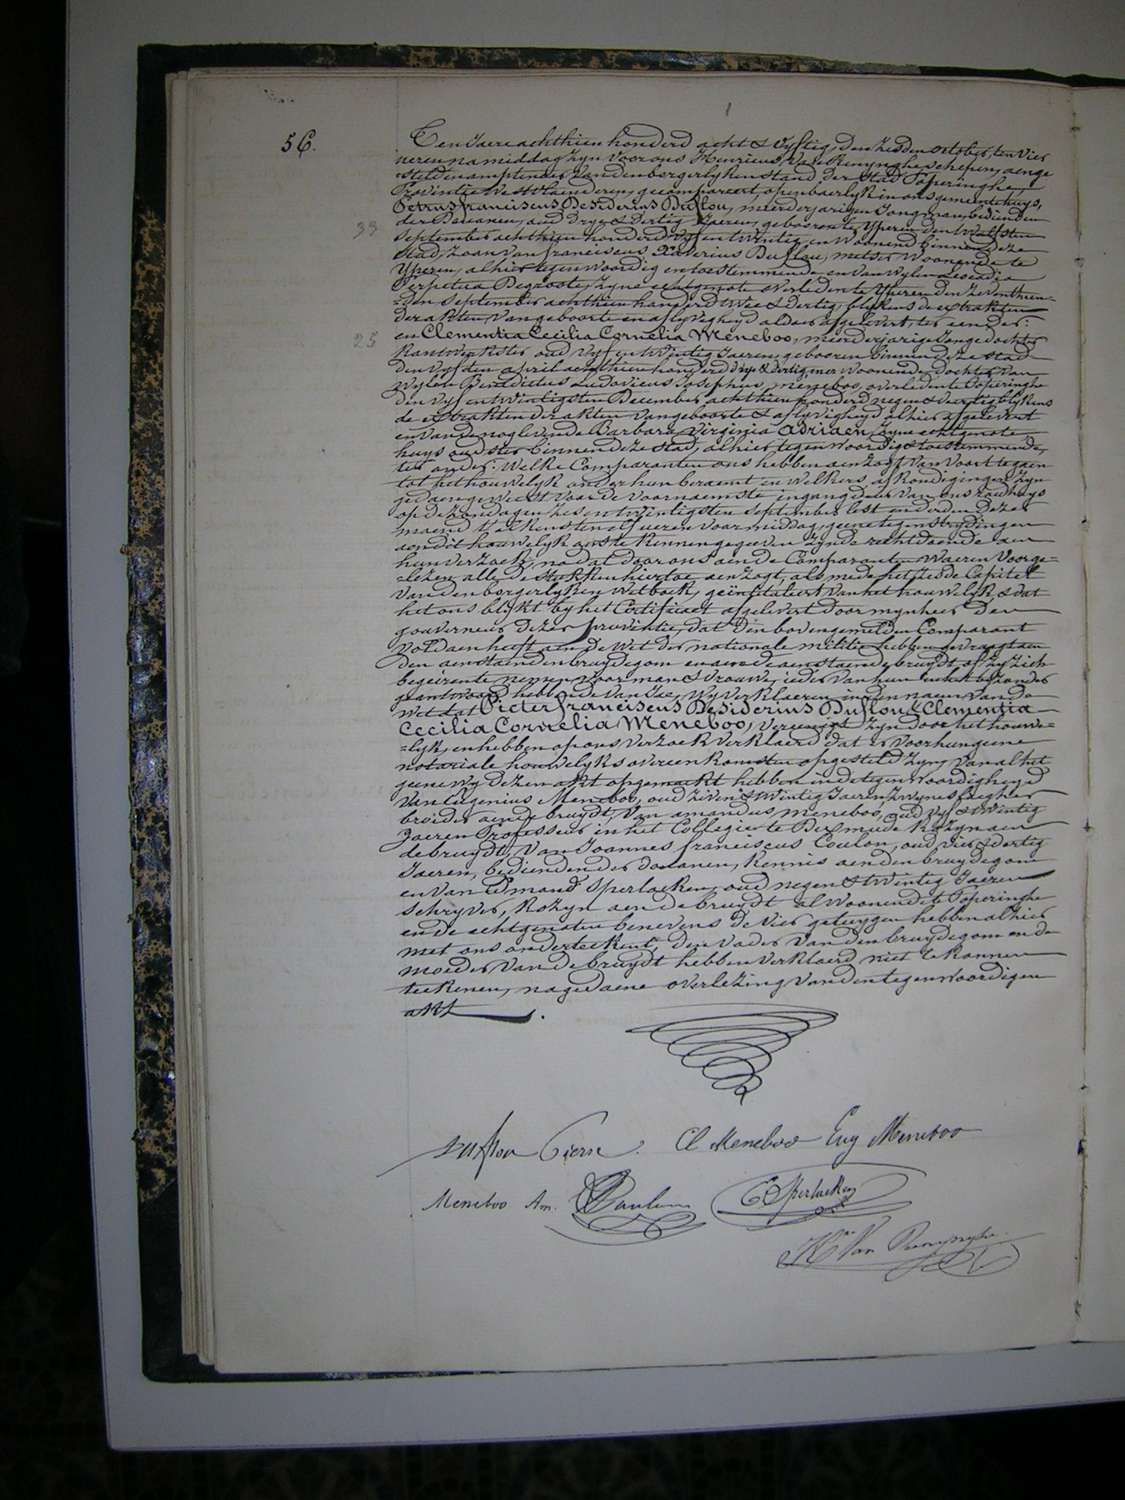 56.
Ten Jaere achthien honderd acht & vyftig, den zesden october, ten vier
ueren namiddag zyn voor ons Henricus Van Renynghe schepen, aenge
stelden amptenaer van den borgerlyken stand der stad Poperinghe,
Provintie West Vlaenderen, gecompareert openbaerlyk in ons gemeentehuys,
Petrus franciscus Desiderius Duflou, meerderjarigen Jongman, bedienden
der Douanen, oud dry & dertig Jaeren, geboren te Yperen den twelfsten
33
september achthien honderd vyf en twintig, en woonend binnen deze
stad, zoon van franciscus Xaverius Duflou, metser woonende te
Yperen, alhier tegenwoordig en toestemmende en van wylen Leocadia
Perpetua Degroote, zyne echtgenote overleden te Yperen den zeventhien
den september achthien honderd twee & dertig, blykens de extrakten
der akten van geboorte en aflyvigheyd aldaer afgelevert, ter eender:
en Clementia Cecilia Cornelia Meneboo, meerderjarige Jonge dochter
25
kantwerkster oud vyf en twintig Jaeren, geboren binnen deze stad
den vyfden april achthien honderd dry & dertig, er woonende, dochter van
Wylen Benedictus Ludovicus Josephus Meneboo, overleden te Poperinghe
den vyf en twintigsten December achthien honderd negen & veertig blykens
de extrakten der akten van geboorte & aflyvigheyd alhier afgelevert
en van de nog levende Barbara Virginia Adriaen, zyne echtgenote
huys oudster binnen deze stad, alhier tegenwoordig & toestemmende,
ter ander: Welke Comparanten ons hebben aenzogt van voort te gaen
tot het houwelyk onder hun beraemt en welkers afkondigingen zyn
gedaen geweest voor de voornaemste ingangdeur van ons raedhuys
op de zondagen zes en twintigsten september lest en derden dezer
maend t'elkens ten elf ueren voormiddag, geene tegenstrydingen
aen dit houwelyk ons te kennen gegeven zynde, rechtdoende aen
hun verzoek, na dat door ons aen de Comparanten waeren voorge=
=lezen alle de stukken hiertoe aenzogt, als mede het zesde Capitel
van den borgerlyken Wetboek, geïntituleert van het houwelyk & dat
het ons blykt by het Certificaet afgelevert door mynheer den
gouverneur dezer provintie, dat den bovengemelden Comparant
voldaen heeft aen de Wet der nationale militie hebben gevraegt aen
den aenstaenden bruydegom en aen de aenstaende bruydt of zy zich
begeirente nemen voor man & vrouwe, ieder van hun in het bezonder
geantwoord hebbende van Jae, Wy verklaeren in den naem van de
Wet dat Pieter franciscus Desiderius Duflou & Clementia
Cecilia Cornelia Meneboo, vereenigt zyn door het houwe=
=lyk, en hebben op ons verzoek verklaerd dat er voor hun geene
notariale houwelyks overeenkomsten opgesteld zyn, van al het
geene wy dezen akt opgemaekt hebben in de tegenwoordigheyd
Van Eugenius Meneboo, oud zeven & twintig Jaeren zwyneslagter
broeder aen de bruydt, Van amandus Meneboo, oud vyf & twintig
Jaeren Professeur in het Collegie te Dixmude Kozyn aen
de bruydt, Van Joannes franciscus Coulon, oud vier & dertig
Jaeren, bedienden der douanen, kennis aen den bruydegom
en van Edmond Sperlaeken, oud negen & twintig Jaeren
schryver, Kozyn aen de bruydt al woonende te Poperinghe
en de echtgenoten benevens de vier getuygen hebben alhier
met ons onderteekent, den vader van den bruydegom en de
moeder van de bruydt hebben verklaerd niet te konnen
teekenen, na gedaene overlezing van den tegenwoordigen
akt.
Duflou Pierre. Cl Meneboo Eug Meneboo
Meneboo Am. Coulon E Sperlaeken
Hri Van Renynghe